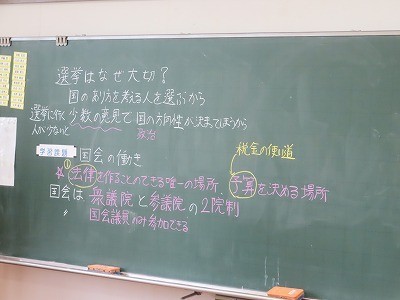 選挙はなぜ大切？
国のあり方を考える人を選ぶから
選挙に行く人が少ないと 少数の意見で国の方向性が決まってしまうから
政治
税金の使い道
学習課題
① 国会の働き
☆法律を作ることのできる唯一の場所、予算を決める場所
国会は 衆議院と参議院の2院制
〃 国会議員のみ参加できる